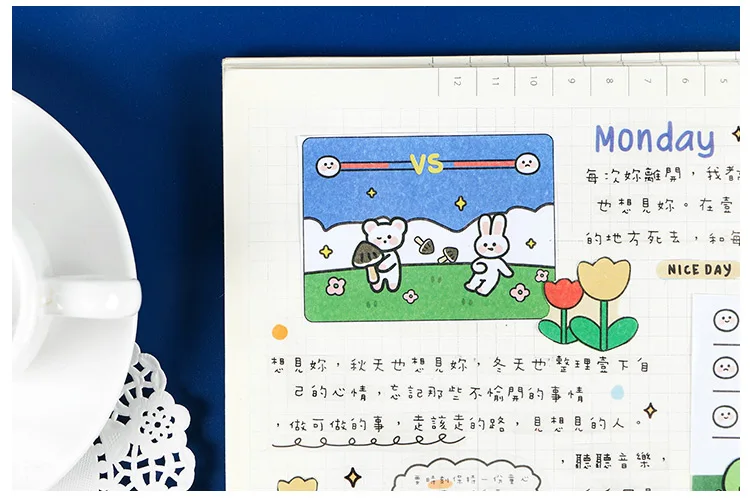 12 11 10 9 8 7 6 5
Monday
VS
每次妳離開，我都
也想見妳。在壹
的地方死去，和每
NICE DAY
想見妳，秋天也想見妳，冬天也整理壹下自
己的心情，忘記那些不愉開的事情
，做可做的事，走該走的路，見想見的人。
，聽聽音樂，